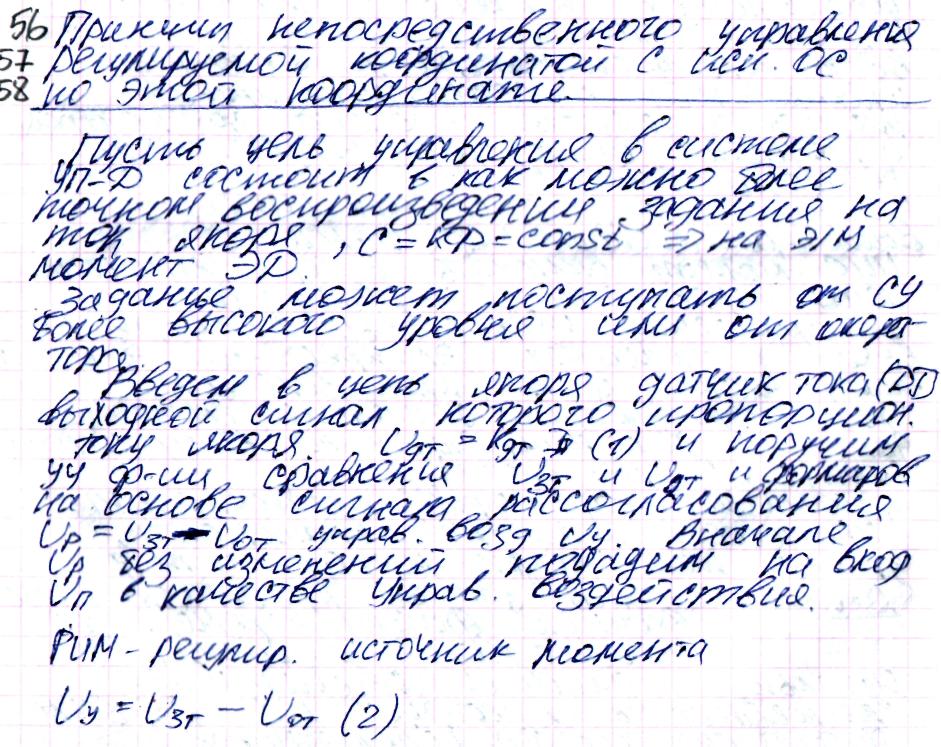 56 Принцип непосредственного управления
57 регулируемой координатой с исп. ОС
58 по этой координате.
Пусть цель управления в системе
УП-Д состоит в как можно более
точном воспроизведении задания на
ток якоря, C = кФ = const => на Э/М
момент ЭД.
Задание может поступать от СУ
более высокого уровня или от опера-
тора.
Введем в цепь якоря датчик тока (ДТ)
выходной сигнал которого пропорцион.
току якоря. Uдт = Kдт I (1) и поручим
УУ ф-ии сравнения Uзт и Uдт и формиров
на основе сигнала рассогласования
Uр = Uзт - Uот управ. возд Uу. Вначале
Uр без изменений подадим на вход
УП в качестве управ. воздействия.
РИМ - регулир. источник момента
Uу = Uзт - Uот (2)